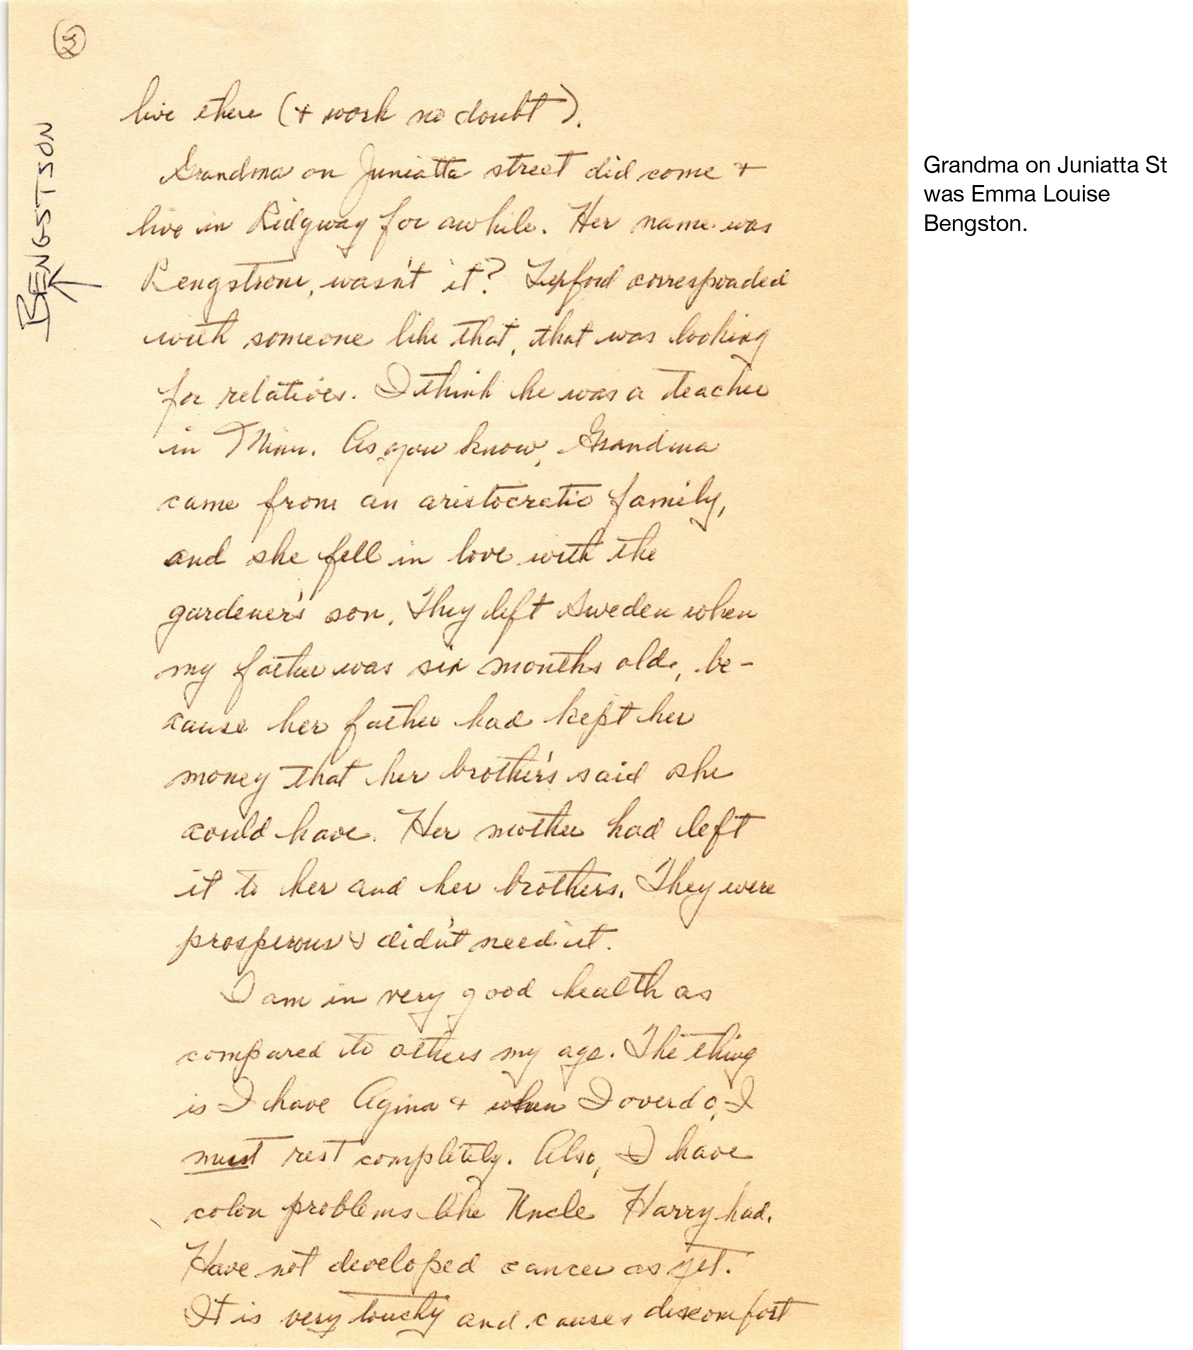 3
live there (+ work no doubt).
Grandma on Juniatta street did come +
live in Ridgway for awhile. Her name was
Bengstrom, wasn't it? corresponded
with someone like that, that was looking
for relatives. I think he was a teacher
in Minn. As you know, Grandma
came from an aristocratic family,
and she fell in love with the
gardener's son. They left Sweden when
my father was six months old, be-
cause her father had kept her
money that her brother's said she
could have. Her mother had left
it to her and her brothers. They were
prosperous & didn't need it.
I am in very good health as
compared to others my age. The thing
is I have Agina + when I overdo, I
must rest completely. Also, I have
colon problems like Uncle Harry had.
Have not developed cancer as yet.
It is very touchy and causes discomfort
BENGSTSON
Grandma on Juniatta St
was Emma Louise
Bengston.